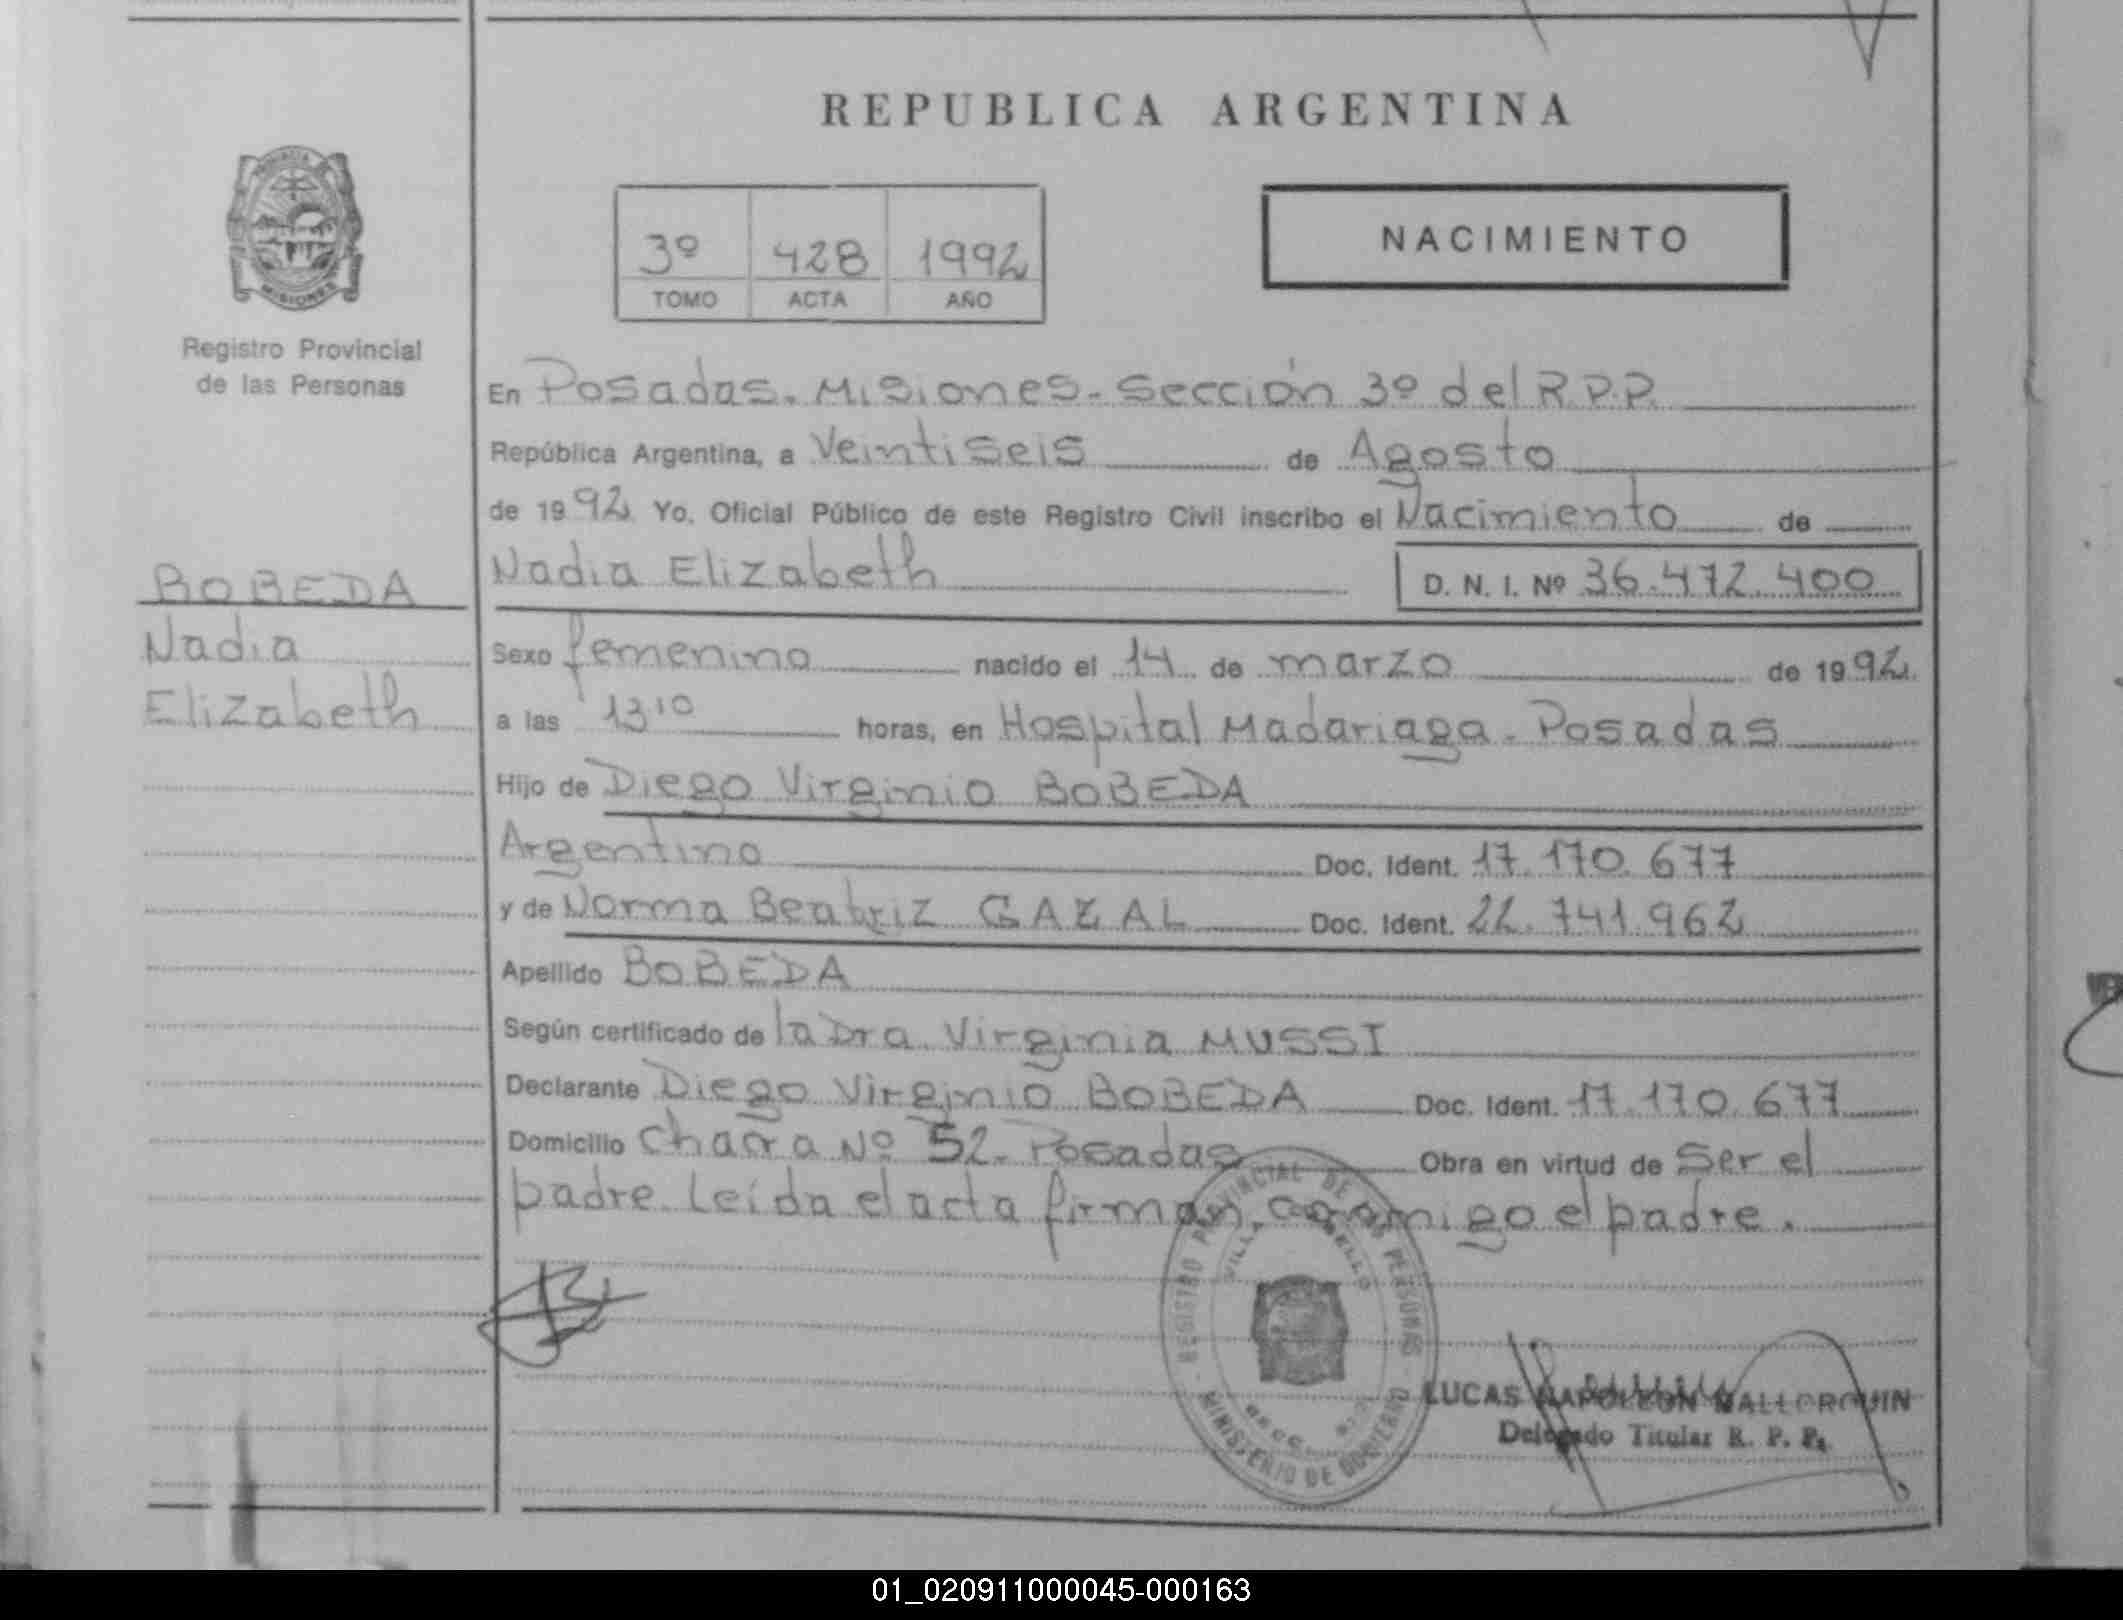 REPUBLICA ARGENTINA
PROVINCIA
MISIONES
Registro Provincial
de las Personas
3º 428 1992
TOMO ACTA AÑO
NACIMIENTO
BOBEDA
Nadia
Elizabeth
En Posadas. Misiones. Sección 3º del R.P.P.
República Argentina, a Veintiseis de Agosto
de 1992 Yo, Oficial Público de este Registro Civil inscribo el Nacimiento de
Nadia Elizabeth D. N. I. Nº 36.472.400
Sexo femenino nacido el 14 de marzo de 1992.
a las 13¹⁰ horas, en Hospital Madariaga. Posadas
Hijo de Diego Virginio BOBEDA
Argentino Doc. Ident. 17.170.677
y de Norma Beatriz GAZAL Doc. Ident. 22.741.962
Apellido BOBEDA
Según certificado de la Dra. Virginia MUSSI
Declarante Diego Virginio BOBEDA Doc. Ident. 17.170.677
Domicilio Chacra Nº 52. Posadas Obra en virtud de Ser el
padre. Leída el acta firman, conmigo el padre.
REGISTRO PROVINCIAL DE LAS PERSONAS
MINISTERIO DE GOBIERNO
LUCAS NAPOLEON MALLORQUIN
Delegado Titular R. P. P.
01_020911000045-000163